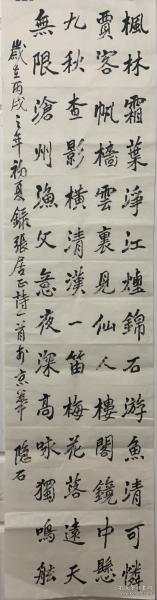 楓林霜葉淨江煙錦石游魚清可憐
賈客帆檣雲裏見仙人樓閣鏡中懸
九秋查影橫清漢一笛梅花落遠天
無限滄州漁父意夜深高咏獨鳴舷
歲在丙戌之年初夏錄張居正詩一首於京華 隱石